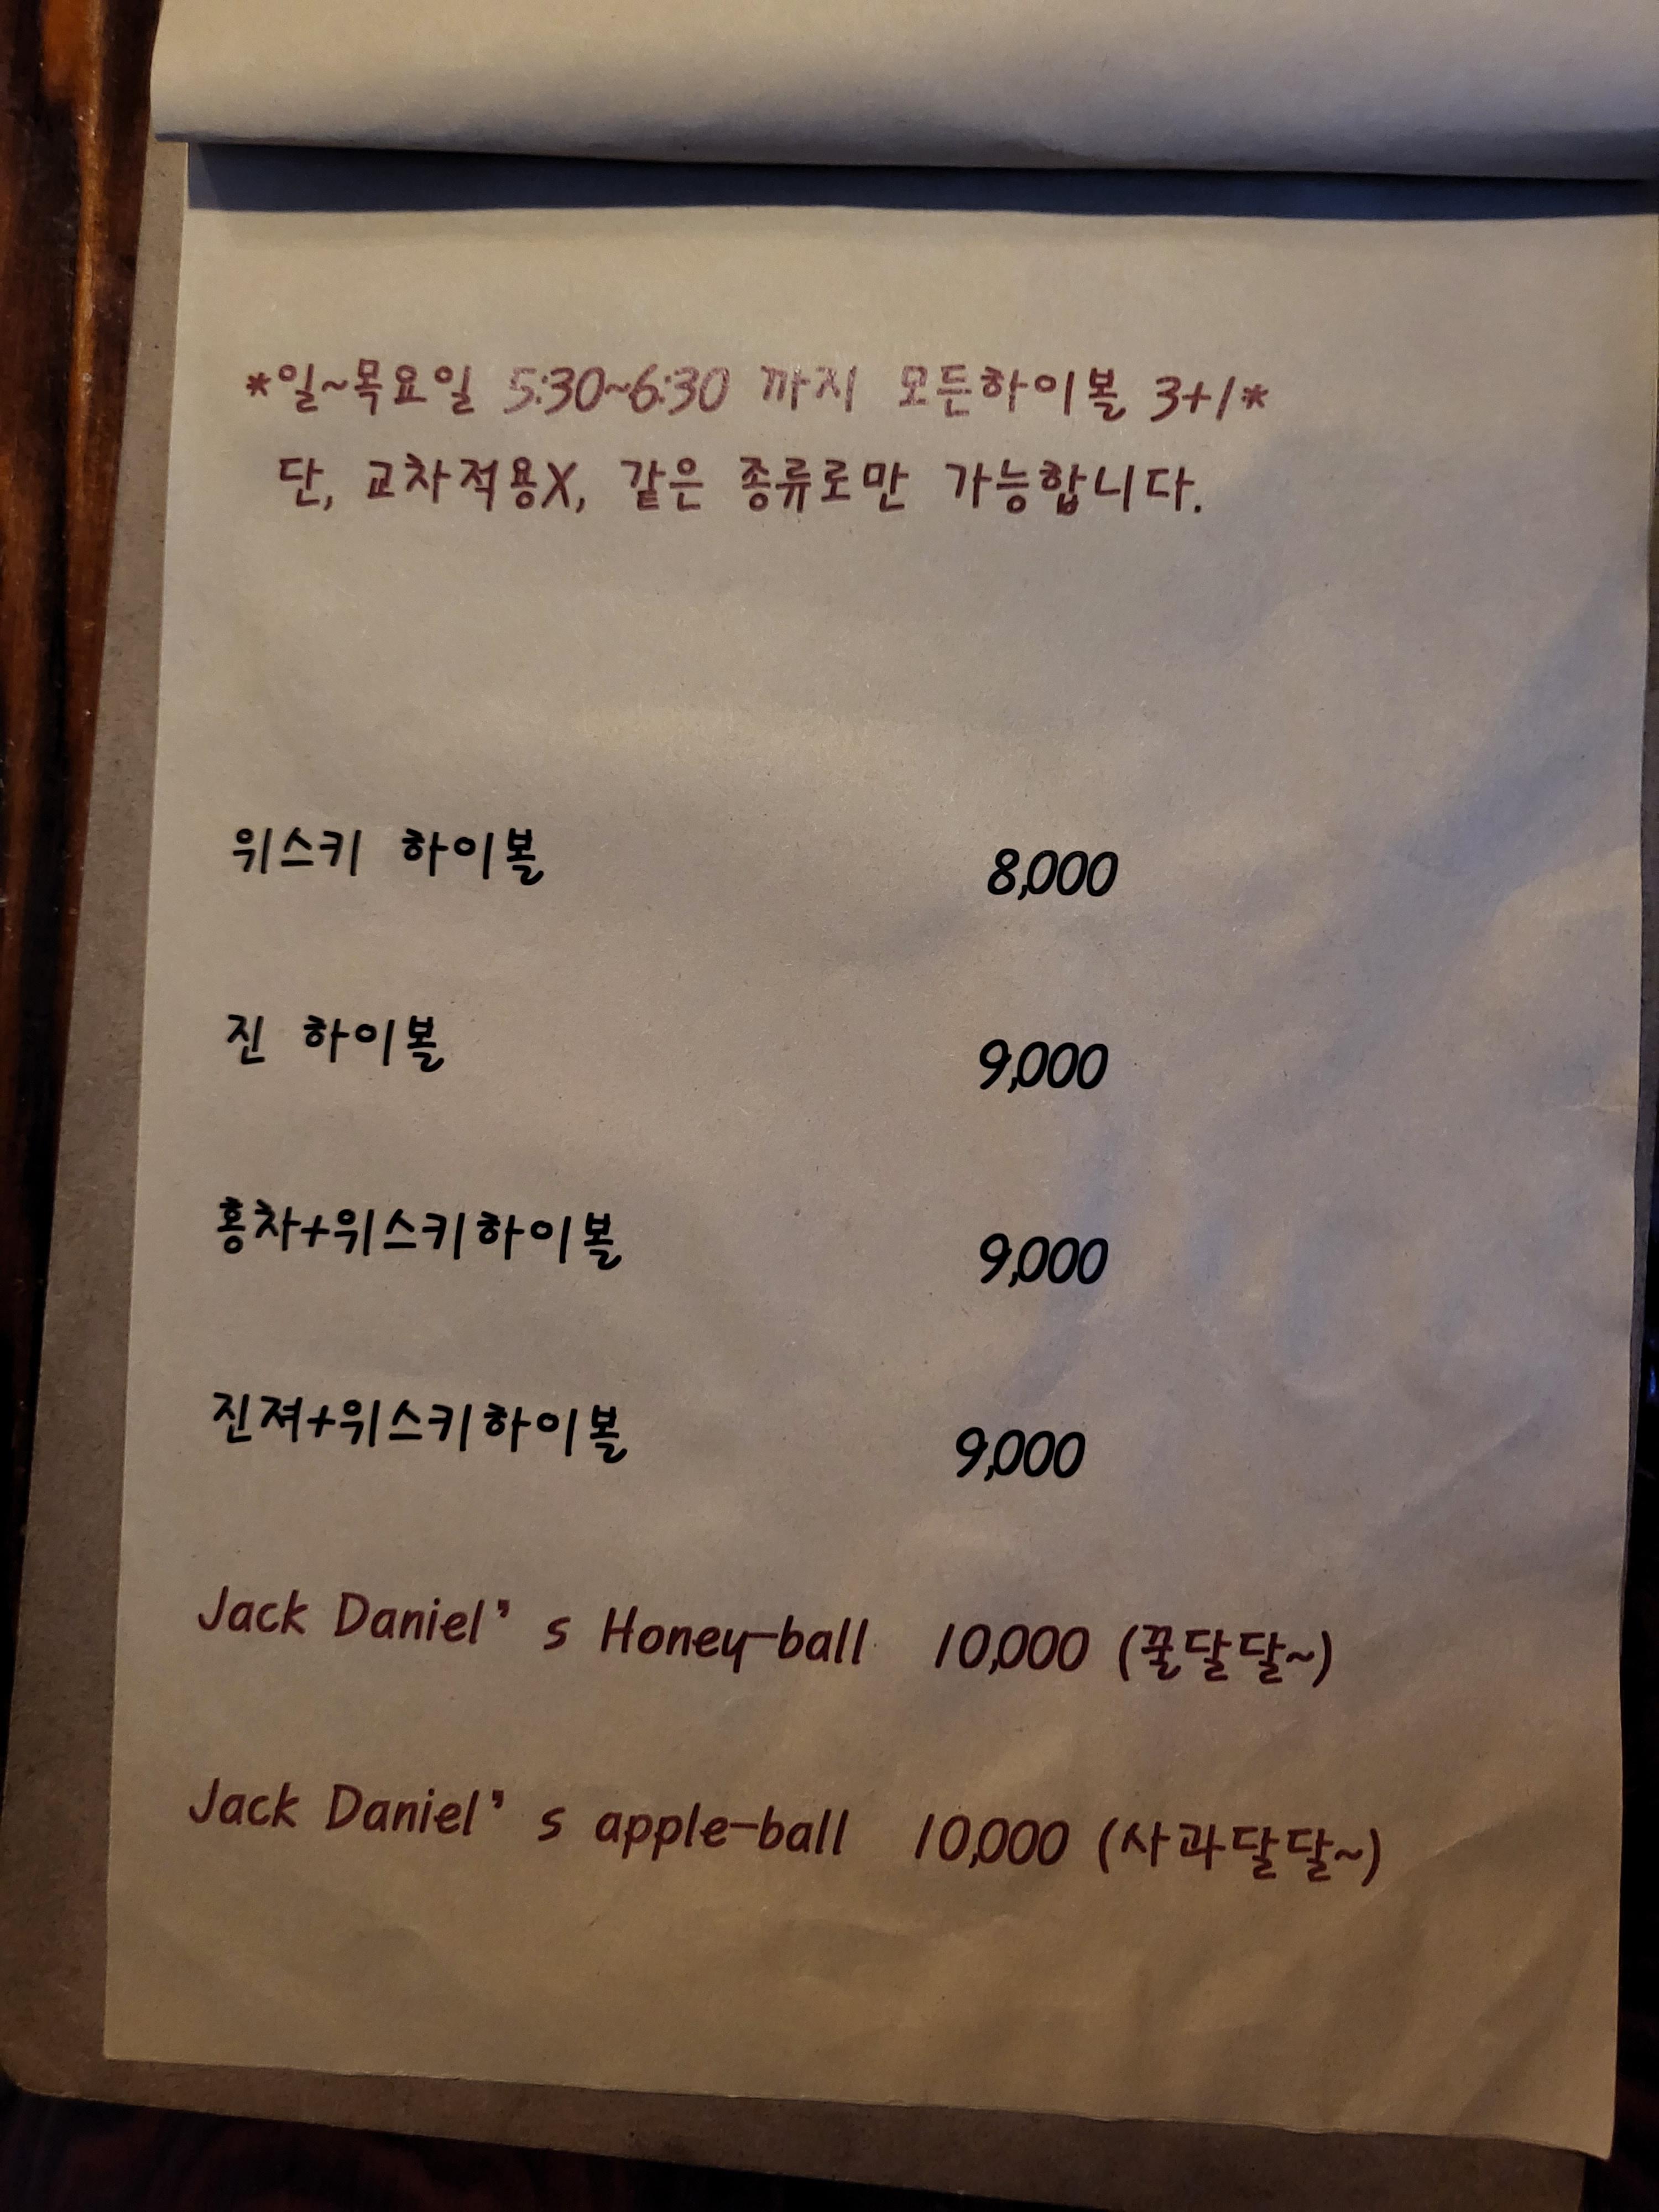 *일~목요일 5:30~6:30 까지 모든하이볼 3+1*
단, 교차적용X, 같은 종류로만 가능합니다.
위스키 하이볼 8,000
진 하이볼 9,000
홍차+위스키하이볼 9,000
진져+위스키하이볼 9,000
Jack Daniel’ s Honey-ball 10,000 (꿀달달~)
Jack Daniel’ s apple-ball 10,000 (사과달달~)